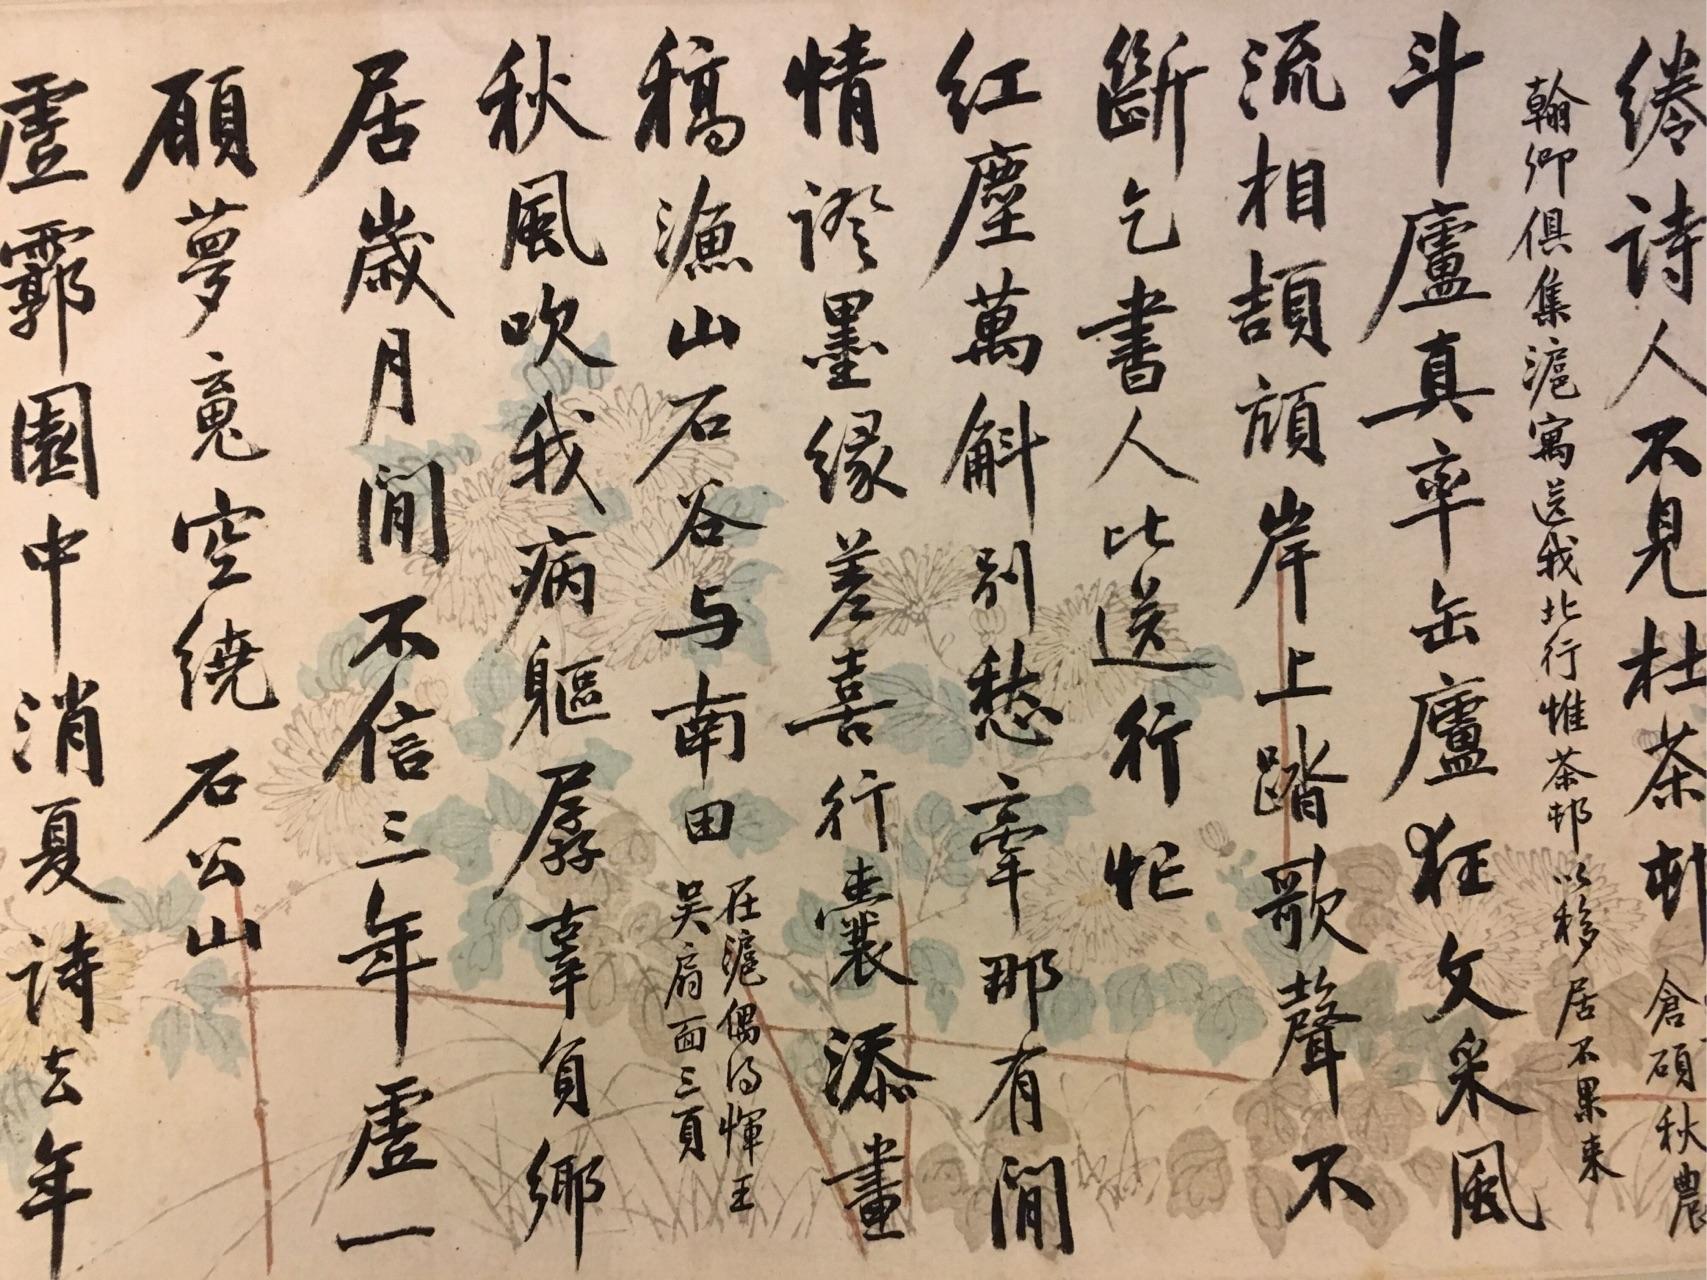 綣诗人不見杜茶邨
倉碩秋農
翰卿俱集滬寓送我北行惟茶邨以移居不果来
斗廬真率缶廬狂文采風
流相頡頏岸上踏歌聲不
斷乞書人比送行忙
紅塵萬斛別愁牽那有閒
情證墨緣差喜行囊添畫
稿漁山石谷与南田
在滬偶得惲王
吴扇面三頁
秋風吹我病軀孱辜負鄉
居歲月閒不信三年虛一
願夢魂空繞石公山
虛霩園中消夏诗去年